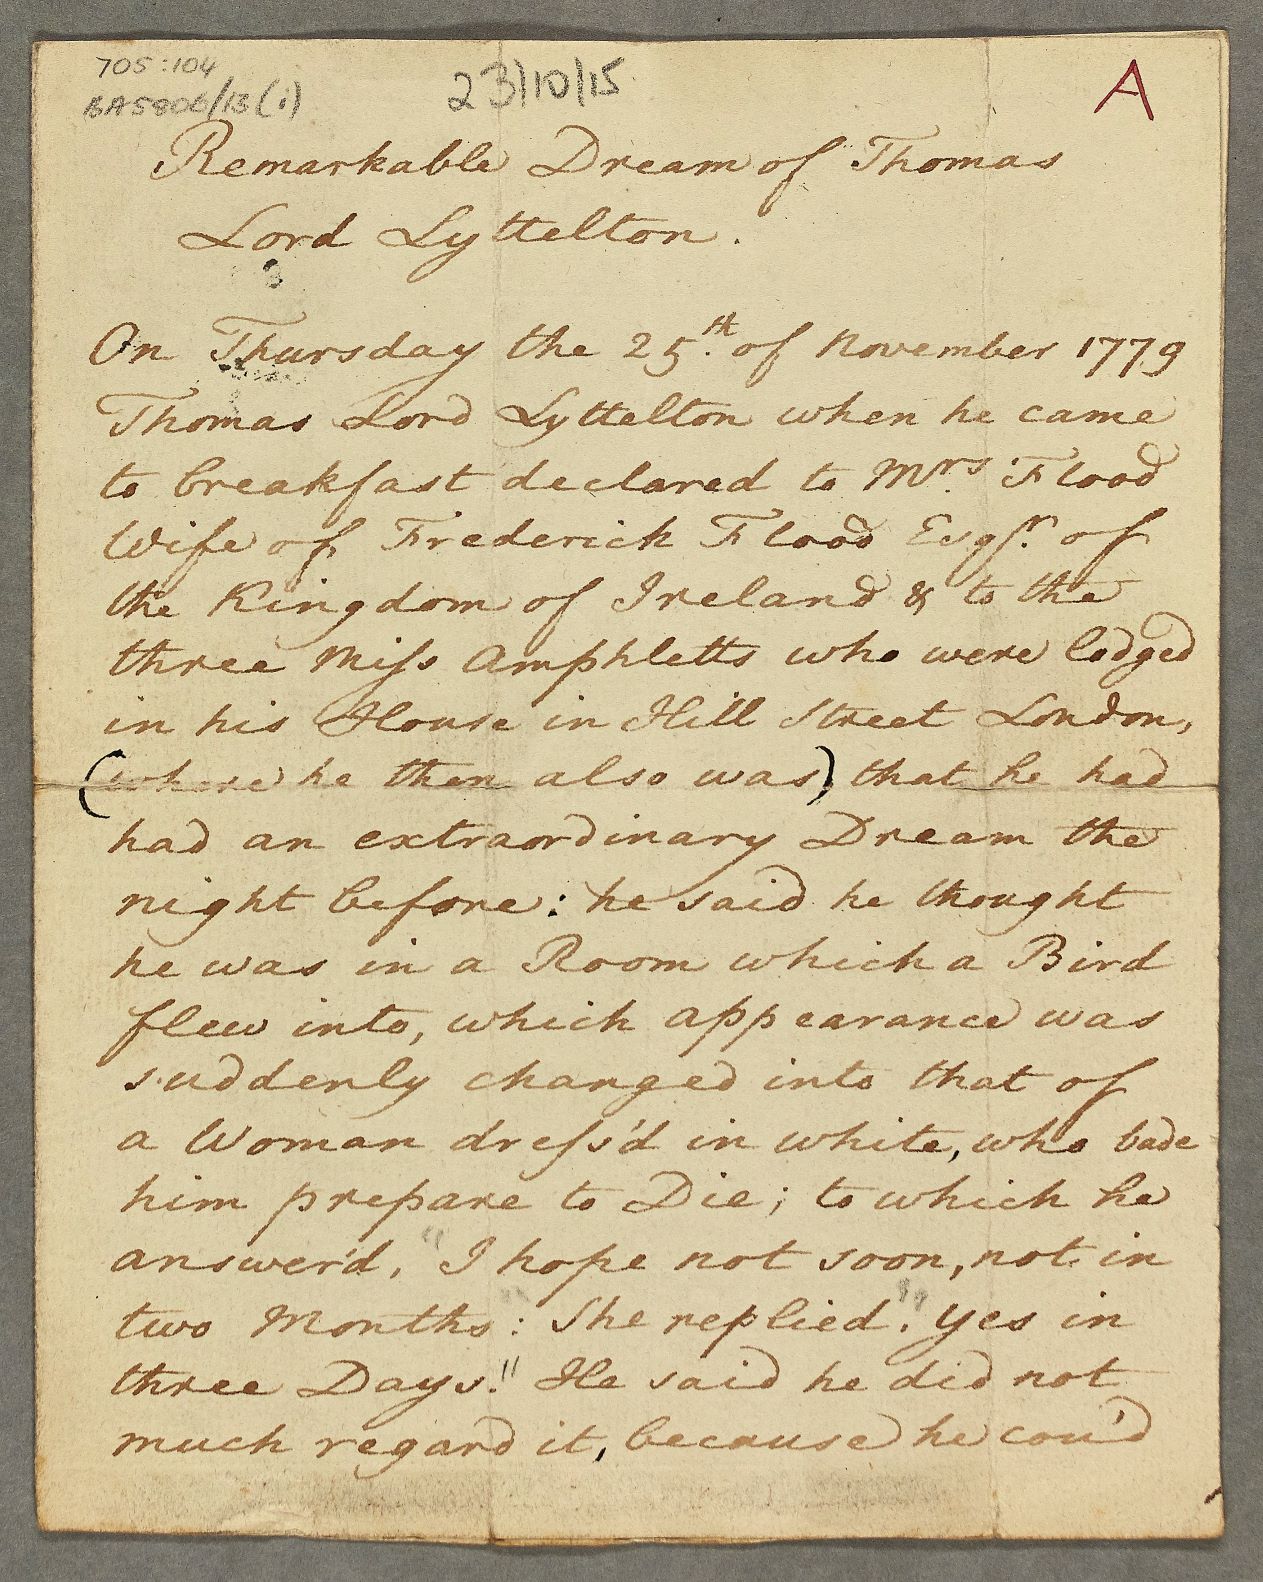 705:104
BA5806/13(i)
23/10/15
A
Remarkable Dream of Thomas
Lord Lyttelton.
On Thursday the 25th. of November 1779
Thomas Lord Lyttelton when he came
to breakfast declared to Mrs. Flood
Wife of Frederick Flood Esqr. of
the Kingdom of Ireland & to the
three Miſs Amphletts who were lodged
in his House in Hill Street London,
(where he then also was) that he had
had an extraordinary Dream the
night before: he said he thought
he was in a Room which a Bird
flew into, which appearance was
suddenly changed into that of
a Woman dreſs'd in white, who bade
him prepare to Die; to which he
answer'd, "I hope not soon, not in
two Months": She replied, "yes in
three Days." He said he did not
much regard it, because he cou'd